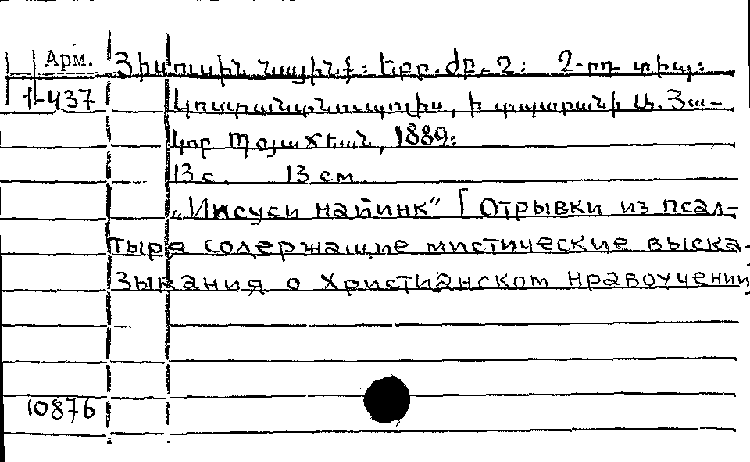 Арм. Յիսուսին նայինք: Երր. մբ. 2: 2-րդ տիպ:
1-437 Կոստանտնուպոլիս, ի տպարանի Ա. Յա-
կոբ Պօյաճեան, 1889:
13 с. 13 см.
„Иисуси найинк" [Отрывки из псал-
тыря содержащие мистические выска-
зывания о Христианском нравоучении
10876